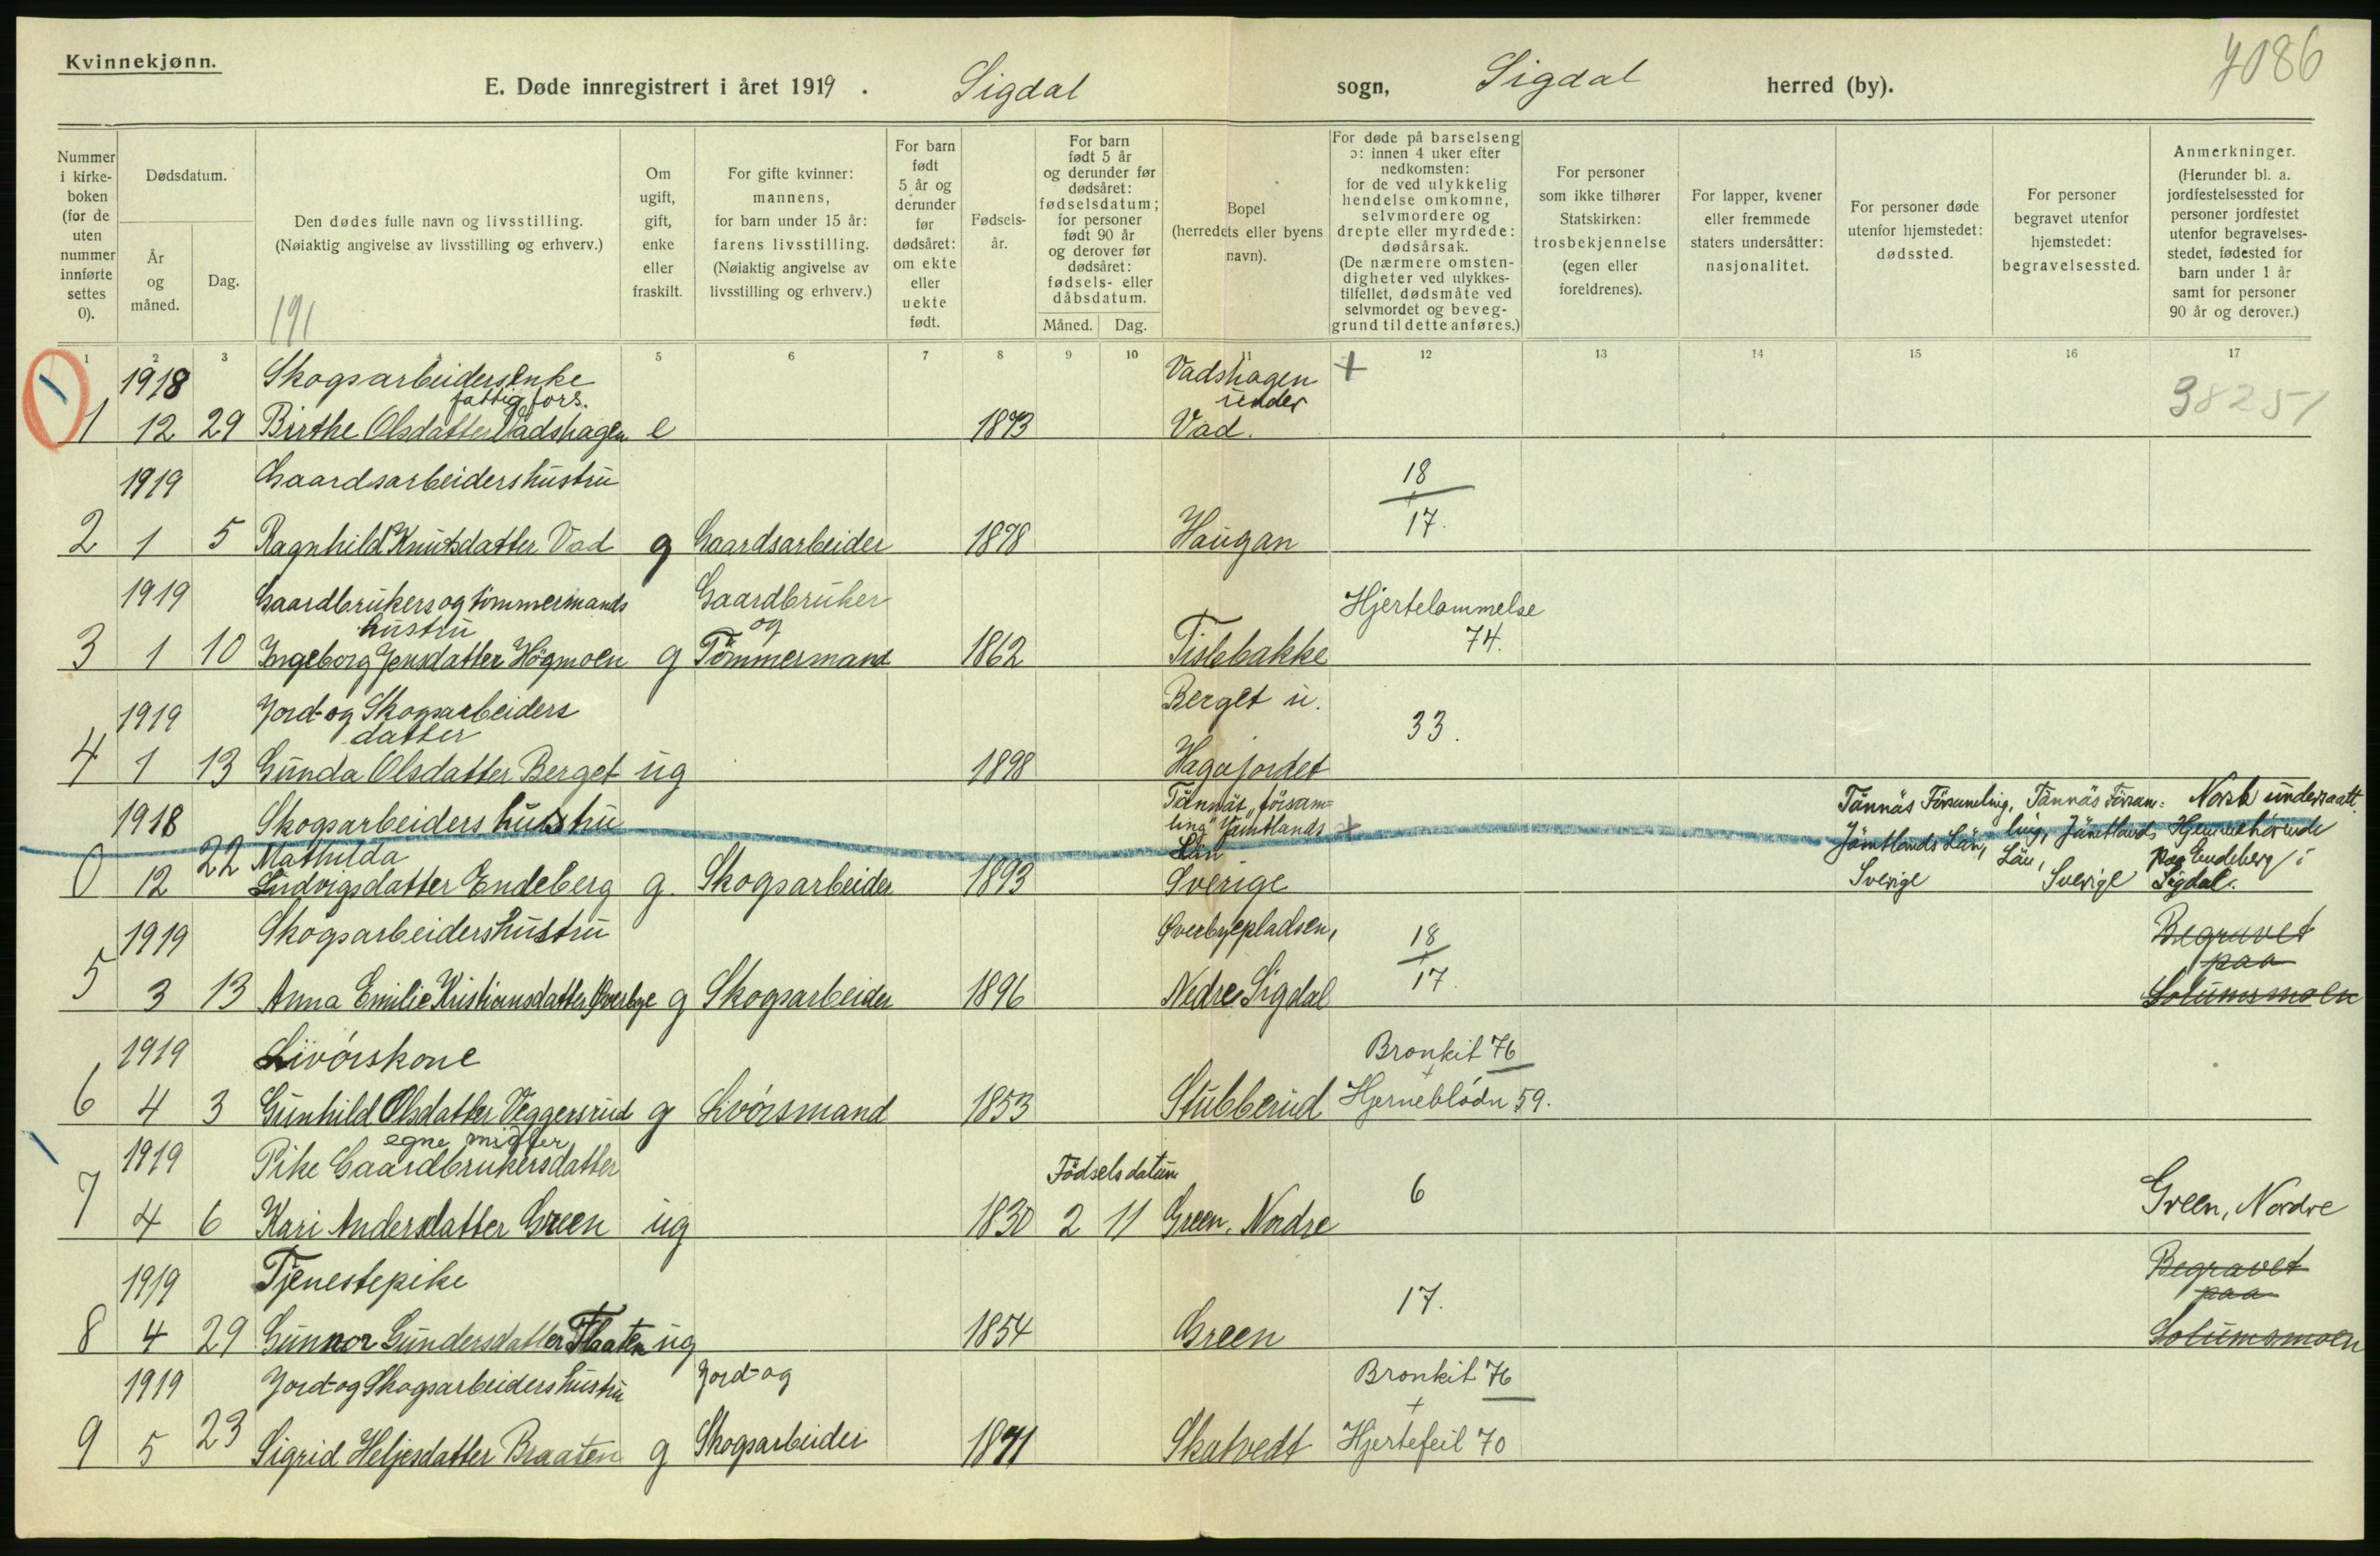 Kvinnekjønn.
7086
E. Døde innregistrert i året 1919 . Sigdal sogn, Sigdal herred (by).
Nummer i kirke-boken (for de uten nummer innførte settes 0).
Dødsdatum.
År og måned.
Dag.
Den dødes fulle navn og livsstilling.
(Nøiaktig angivelse av livsstilling og erhverv.)
191
Om ugift, gift, enke eller fraskilt.
For gifte kvinner: mannens, for barn under 15 år: farens livsstilling. (Nøiaktig angivelse av livsstilling og erhverv.)
For barn født 5 år og derunder før dødsåret: om ekte eller uekte født.
Fødsels-år.
For barn født 5 år og derunder før dødsåret: fødselsdatum; for personer født 90 år og derover før dødsåret: fødsels- eller dåbsdatum.
Måned. Dag.
Bopel (herredets eller byens navn).
For døde på barselseng ɔ: innen 4 uker efter nedkomsten: for de ved ulykkelig hendelse omkomne, selvmordere og drepte eller myrdede: dødsårsak. (De nærmere omsten-digheter ved ulykkes-tilfellet, dødsmåte ved selvmordet og beveg-grund til dette anføres.)
For personer som ikke tilhører Statskirken: trosbekjennelse (egen eller foreldrenes).
For lapper, kvener eller fremmede staters undersåtter: nasjonalitet.
For personer døde utenfor hjemstedet: dødssted.
For personer begravet utenfor hjemstedet: begravelsessted.
Anmerkninger. (Herunder bl. a. jordfestelsessted for personer jordfestet utenfor begravelses-stedet, fødested for barn under 1 år samt for personer 90 år og derover.)
1 2 3 5 6 7 8 9 10 11 12 13 14 15 16 17
1918 Skogsarbeidersenke Vadshagen +
fattig fors. under 38251
1 12 29 Birthe Olsdatter Vadshagen e 1843 Vad.
1919 Gaardsarbeidershustru 18
2 1 5 Ragnhild Knutsdatter Vad g Gaardsarbeider 1878 Haugan 17.
1919 Gaardbrukers og tømmermands Gaardbruker Hjertelammelse
hustru og 74.
3 1 10 Ingeborg Jensdatter Högmoen g Tömmermand 1862 Tislebakke
1919 Jord- og Skogsarbeiders Berget u. 33.
datter
4 1 13 Gunda Olsdatter Berget ug 1898 Hagajordet
1918 Skogsarbeiders hustru Tännäs "försam= Tännäs Församling, Tännäs Försam= Norsk undersaatt.
ling" Jämtlands + Jämtlands Län, ling, Jämtlands Hjemmehörende
22 Mathilda Län Län, paa Endeberg i
0 12 Ludvigsdatter Endeberg g. Skogsarbeider 1893 Sverige Sverige Sverige Sigdal.
1919 Skogsarbeidershustru Øverbyepladsen, 18 Begravet
paa
5 3 13 Anna Emilie Kristiansdatter Øverbye g Skogsarbeider 1896 Nedre Sigdal 17. Solumsmoen
1919 Livörskone Bronkit 76
+
6 4 3 Gunhild Olsdatter Veggersrud g Livörsmand 1853 Stubberud Hjerneblödn 59.
egne midler
1919 Pike Gaardbrukersdatter Födselsdatum
7 4 6 Kari Andersdatter Green ug 1830 2 11 Green, Nordre 6 Green, Nordre
1919 Tjenestepike 17. Begravet
paa
8 4 29 Gunnor Gundersdatter Flaaten ug 1854 Green Solumsmoen
1919 Jord- og Skogsarbeiders hustru Jord- og Bronkit 76
+
9 5 23 Sigrid Heljesdatter Braaten g Skogsarbeider 1871 Skatvedt Hjertefeil 70